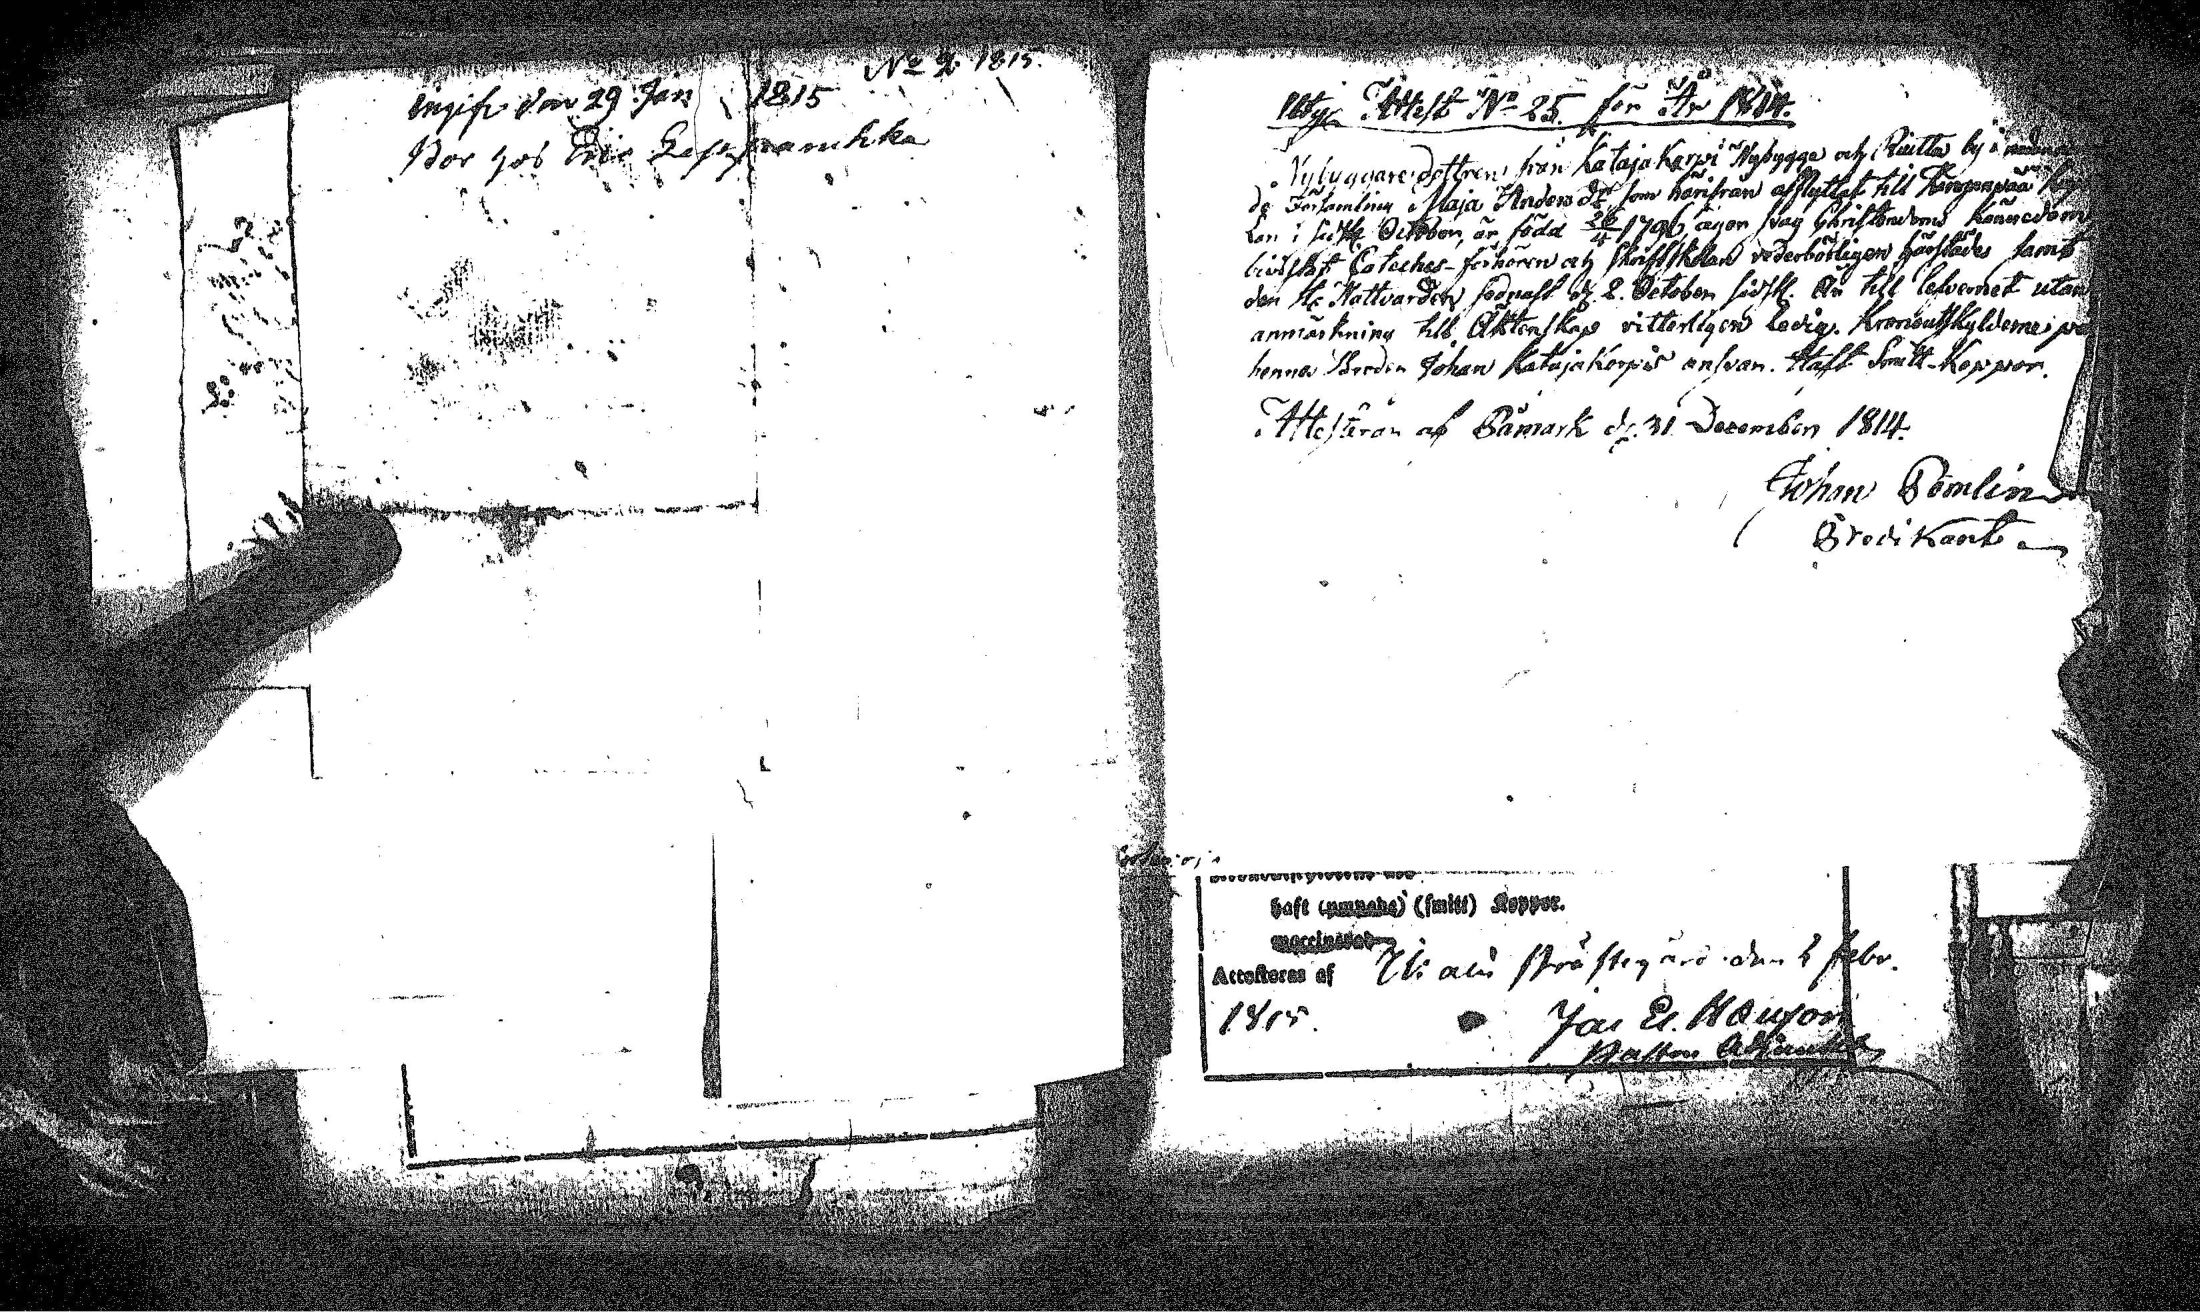 No 2. 1815.
ingifv. den 29 Jan 1815
Bor hos Eric
Utg. Attest No 25. för År 1814.
Nybyggare dottren från Katajakorpi Nybygge och Riitta by i
de Församling Maja Anders dr. som härifrån afflyttat till Kanganpää
len i sistl. October, är född 26/4 1796, äger svag Christendoms kunnedom
bivistat Catechesförhören och skriftskolan vederbörligen härstädes samt
den H. Nattvarden sednast d. 2. October sistl. Är till lefvernet utan
anmärkning till Äktenskap vitterligen ledig. Kronoutskylderne
henne Broder Johan Katajakorpis ansvar. Haft Smitt-Koppor.
Attesteras af Påmark d. 31. December 1814.
Johan Pomlin
Predikant
haft (ympade) (smitt) Koppor.
vaccinerad
Attesteras af prästegård den 5 febr.
1815.
Pastors Adjunct